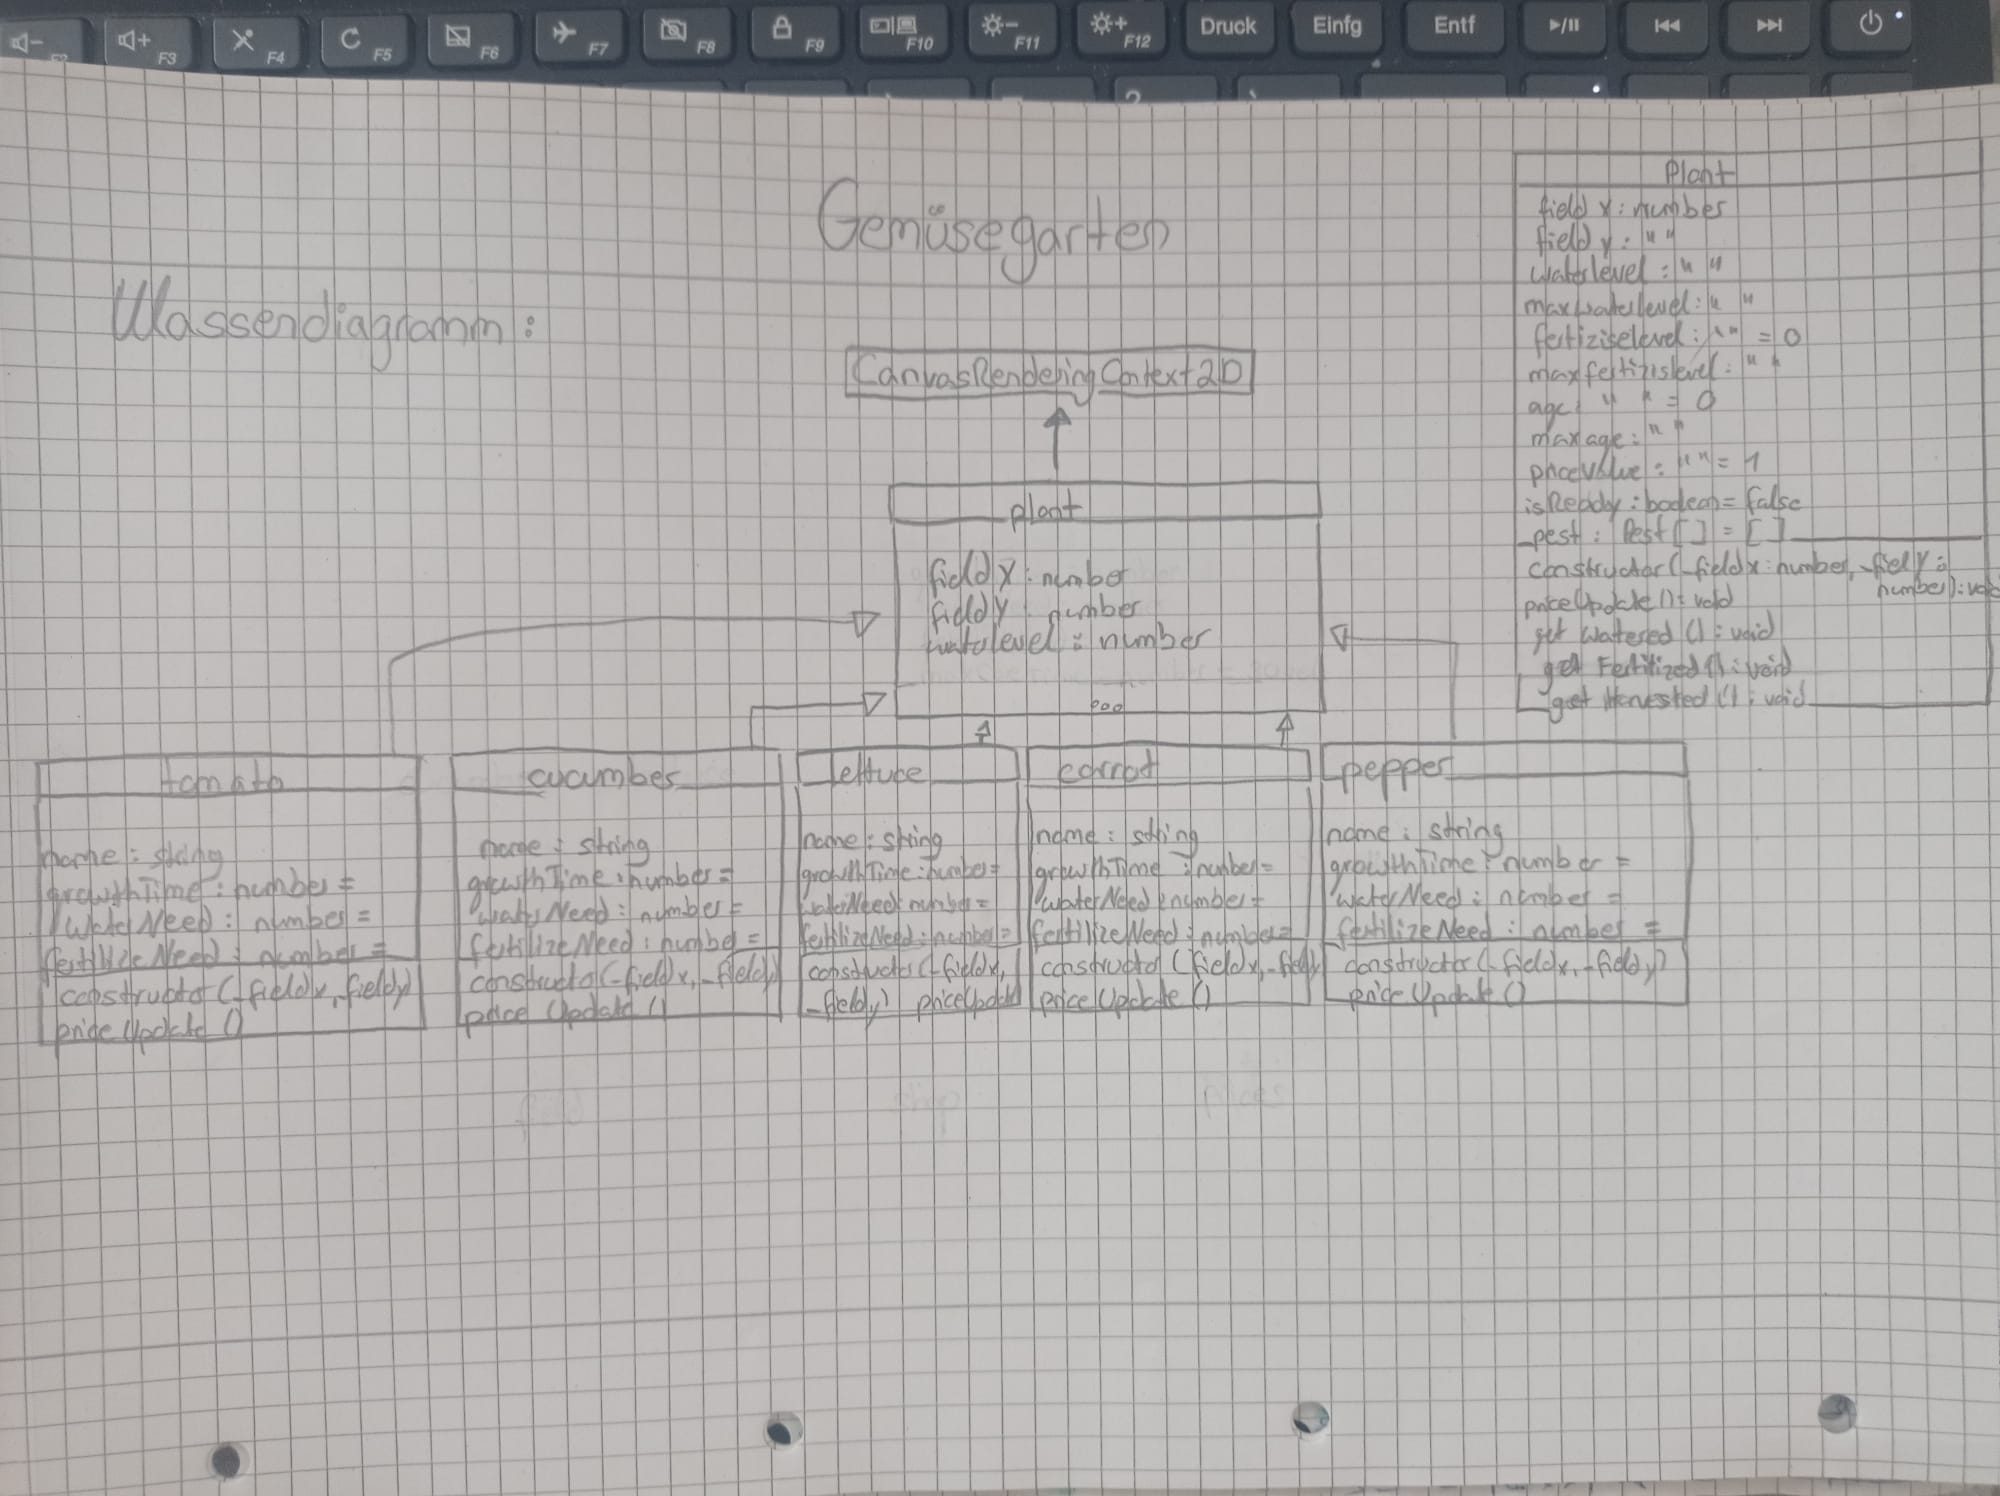 F2
F3
F4
F5
F6
F7
F8
F9
F10
F11
F12
Druck
Einfg
Entf
Gemüsegarten
Klassendiagramm:
CanvasRenderingContext2D
plant
fieldX: number
fieldY: number
waterlevel: number
Plant
field x: number
field y: " "
waterlevel: " "
maxwaterlevel: " "
fertiziselevel: " " = 0
maxfertizislevel: " "
age: " " = 0
maxage: " "
priceValue: " " = 1
isReady: boolean = false
pest: Pest[] = []
constructor(_fieldx: number, _fiely:
number): void
priceUpdate(): void
get Watered(): void
get Fertilized(): void
get Harvested(): void
tomato
name: string
growthTime: number =
WaterNeed: number =
fertilizeNeed: number =
constructor(_fieldx, _fieldy)
priceUpdate()
cucumber
name: string
growthTime: number =
waterNeed: number =
fertilizeNeed: number =
constructor(_fieldx, _fieldy)
price Update()
lettuce
name: string
growthTime: number =
waterNeed: number =
fertilizeNeed: number =
constructor(_fieldx,
_fieldy) priceUpdate
carrot
name: string
growthTime: number =
waterNeed: number =
fertilizeNeed: number =
constructor(fieldx, _fieldy)
priceUpdate()
pepper
name: string
growthTime: number =
waterNeed: number =
fertilizeNeed: number =
constructor(_fieldx, _fieldy)
priceUpdate()